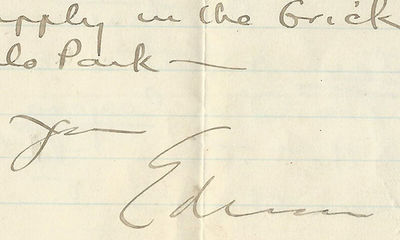 upply in the Brick
lo Park —
Yrs
Edison